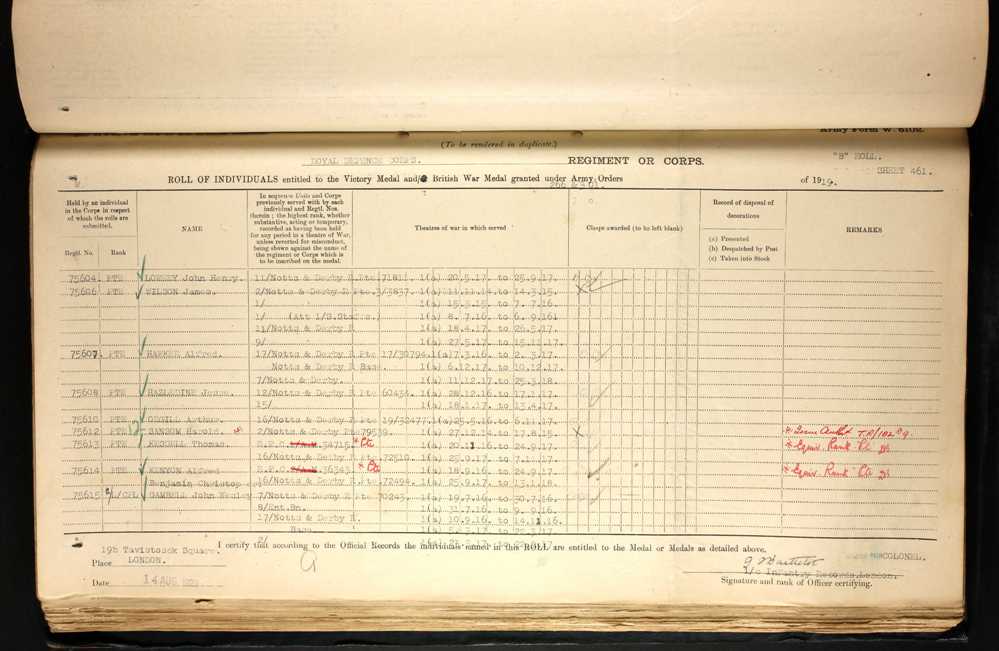 Army Form W. 5102.
(To be rendered in duplicate.)
"B" ROLL.
ROYAL DEFENCE CORPS. REGIMENT OR CORPS.
SHEET 461.
ROLL OF INDIVIDUALS entitled to the Victory Medal and/or British War Medal granted under Army Orders of 1919.
266 & 301.
Held by an individual in the Corps in respect of which the rolls are submitted.
Regtl. No. Rank
NAME
In sequence Units and Corps previously served with by each individual and Regtl. Nos. therein; the highest rank, whether substantive, acting or temporary, recorded as having been held for any period in a theatre of War, unless reverted for misconduct, being shewn against the name of the regiment or Corps which is to be inserted on the medal.
Theatres of war in which served
Clasps awarded (to be left blank)
Record of disposal of decorations
(a) Presented
(b) Despatched by Post
(c) Taken into Stock
REMARKS
75604 PTE John Henry. 11/Notts & Derby R.Pte 1(a) 20.5.17. to 25.9.17.
75606 PTE WILSON James. 2/Notts & Derby R Pte.3/5837. 1(a) 11.11.14. to 14.3.15.
1/ 1(a) 15.3.15. to 7. 7.16.
1/ (Att 1/S.Staffs.) 1(a) 8. 7.16. to 6. 9.16.
11/Notts & Derby R. 1(a) 18.4.17. to 26.5.17.
9/ 1(a) 27.5.17. to 15.11.17.
75607. PTE Alfred. 17/Notts & Derby R Pte 17/30794. 1(a) 7.3.16. to 2. 3.17.
Notts & Derby R Base. 1(a) 6.12.17. to 10.12.17.
7/Notts & Derby. 1(a) 11.12.17. to 25.3.18.
75608 PTE HAZLEDINE Jesse. 12/Notts & Derby R Pte 60434. 1(a) 28.12.16. to 17.1.17.
15/ 1(a) 18.1.17. to 13.4.17.
75610 PTE Arthur. 16/Notts & Derby R Pte 19/32477. 1(a) 25.5.16. to 6.11.17.
75612 PTE SANSOM Harold. 2/Notts & Derby Pte 79539. 1(a) 27.12.14. to 17.8.15.
75613 PTE Thomas. 34715 * Pte 1(a) 20.11.16. to 24.9.17. * Equiv. Rank Pte
16/Notts & Derby R Pte 72510. 1(a) 25.9.17. to
75614 PTE KENYON Alfred 36343 * Pte 1(a) 18.9.16. to 24.9.17. * Equiv. Rank Pte
Benjamin 16/Notts & Derby R.Pte 72494. 1(a) 25.9.17. to 13.1.18.
75615 L/CPL GAMBELL John Wesley 7/Notts & Derby R Pte 70243. 1(a) 19.7.16. to 30.7.16.
8/Ent.Bn. 1(a) 31.7.16. to 9. 9.16.
17/Notts & Derby R. 1(a) 10.9.16. to 14.11.16.
Base.
I certify that according to the Official Records the individuals named in this ROLL are entitled to the Medal or Medals as detailed above.
19b Tavistock Square.
Place LONDON.
Date 14 AUG
COLONEL.
i/c Infantry Records, London.
Signature and rank of Officer certifying.